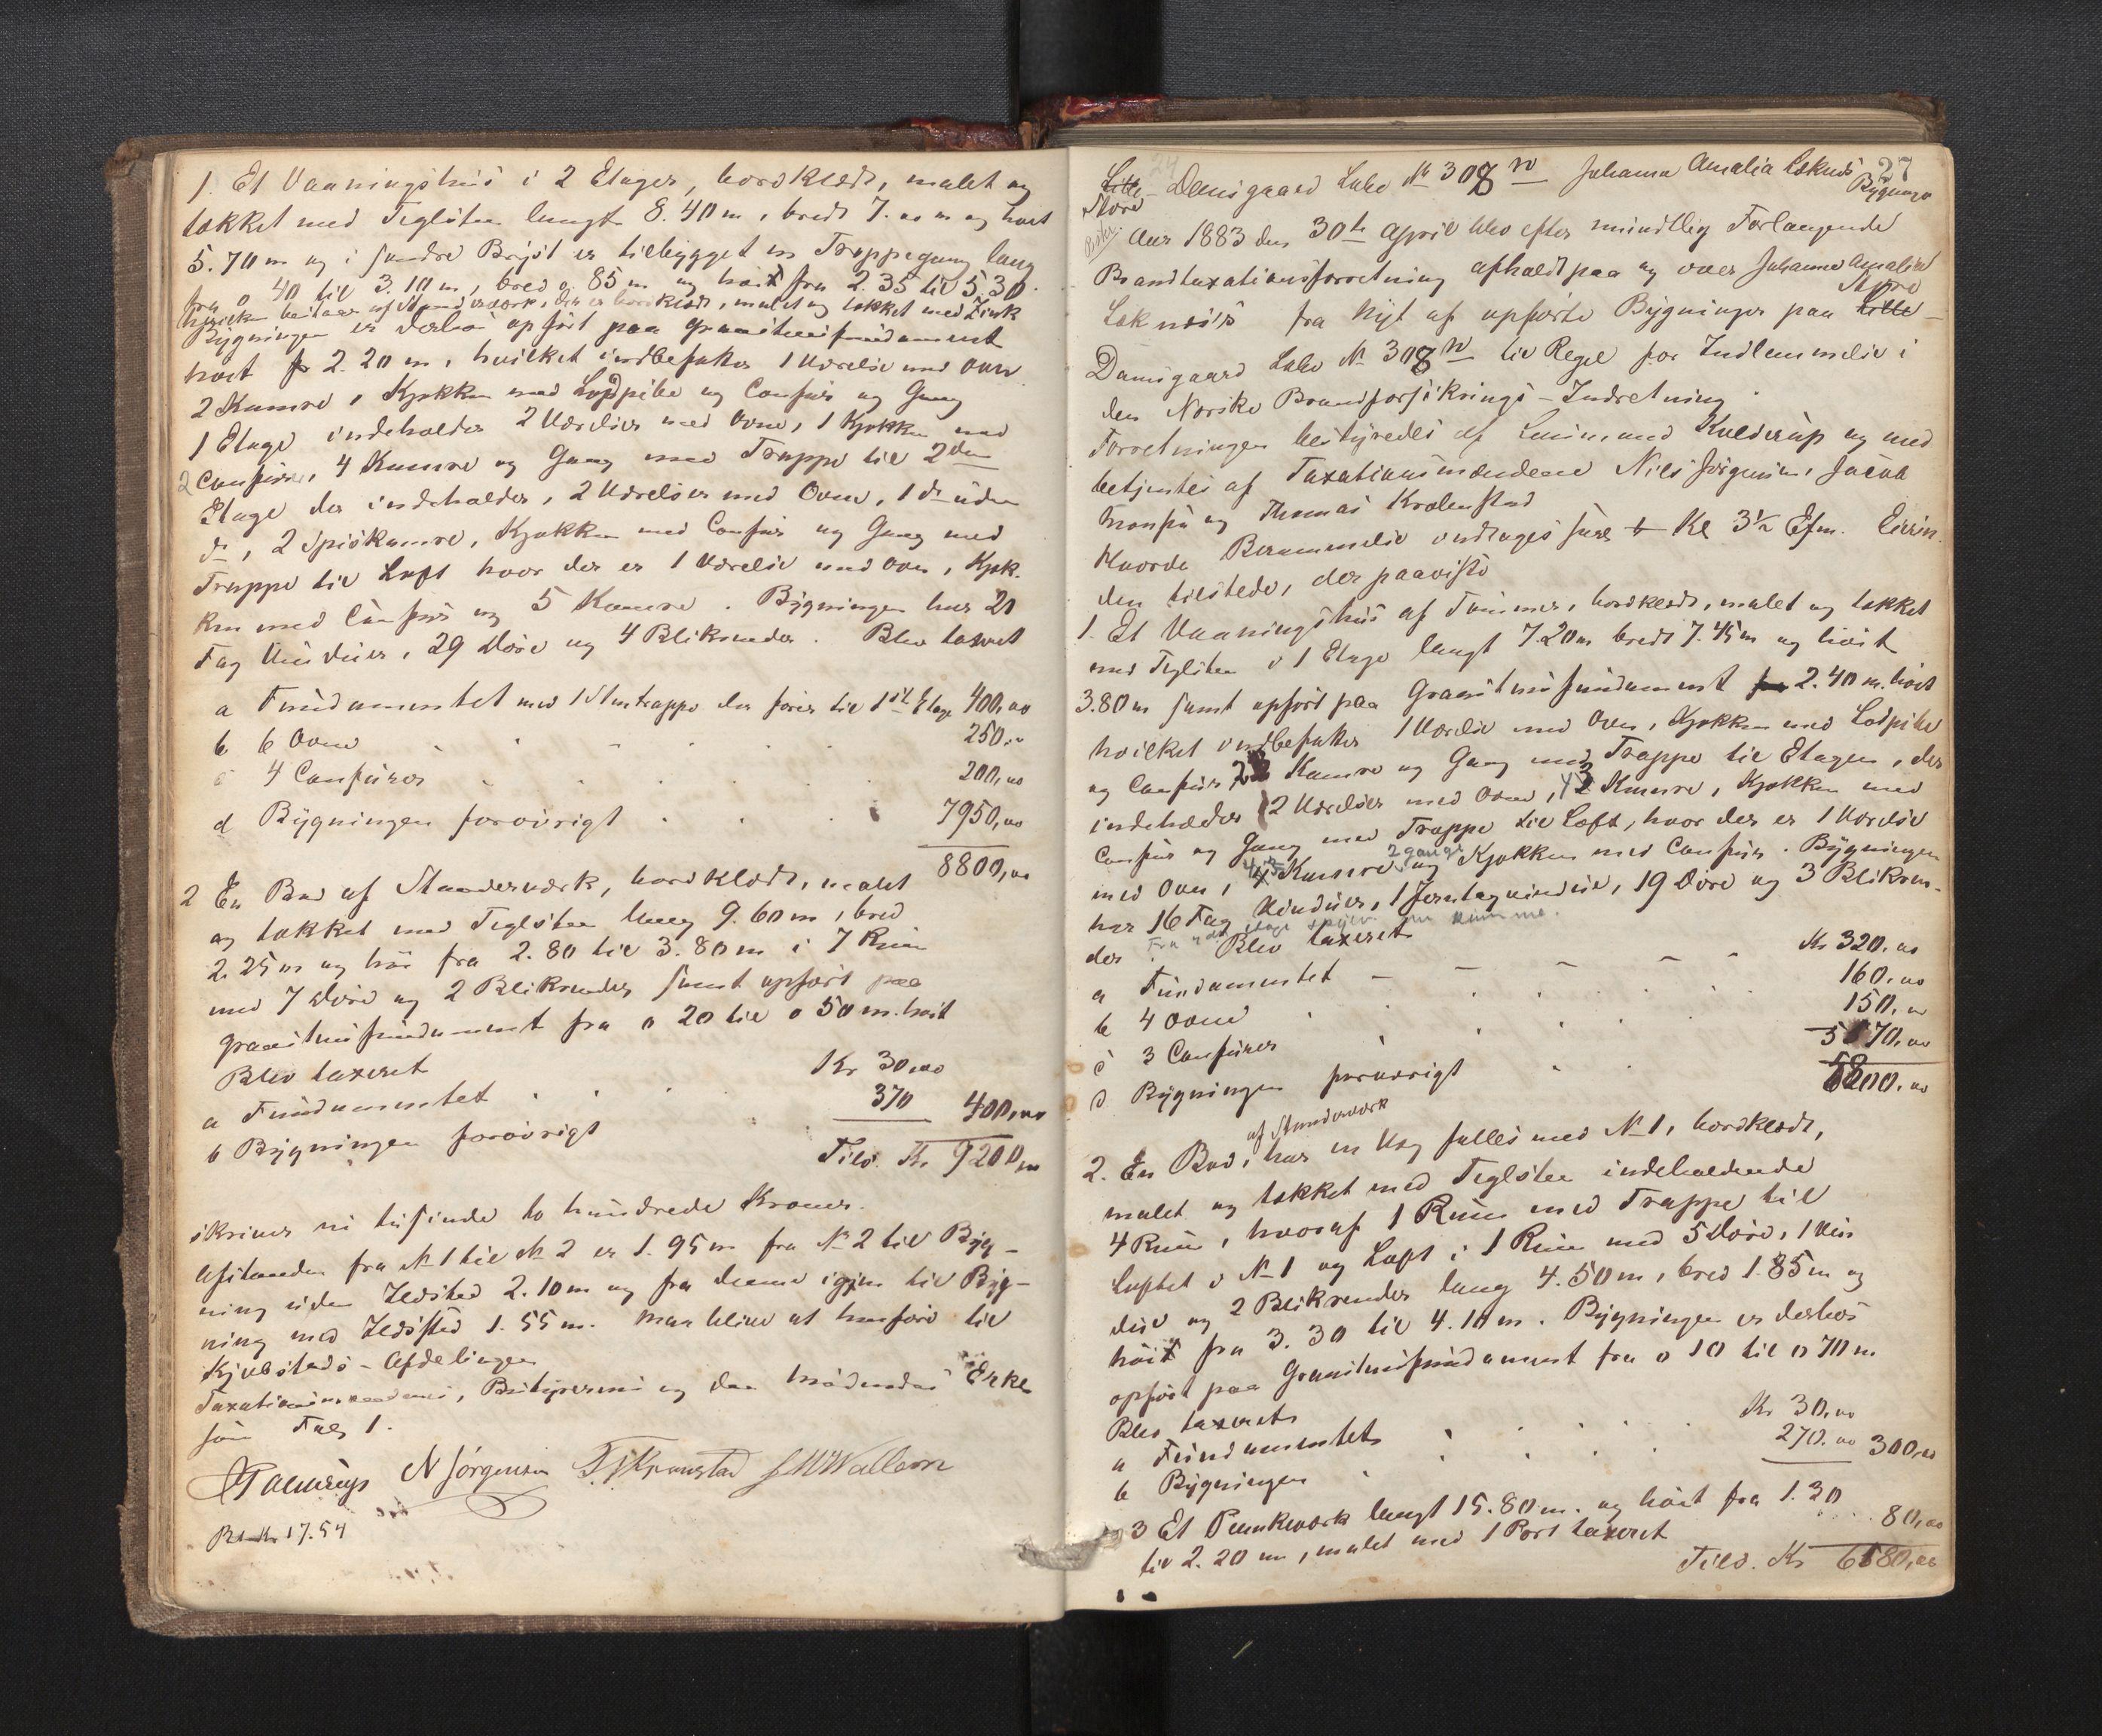 1. Et Vaaningshus i 2 Etager, bordklædt, malet og
takket med Teglsten langt 8.40 m, bredt 7.00 m og høit
5.70 m og i søndre Bryst er tilbygget en Trappegang lang
fra 0 40 til 3.10 m, bred 0.85 m og høit fra 2.35 til 5.30.
hvilken bestaar af Standerværk, den er bordklædt, malet og takket med Zink
Bygningen er derhos opført paa Graastensfundament
høit 2.20 m, hvilket indbefatter 1 Værelse med Ovn
2 Kamre, Kjøkken med Lodpibe og Comfur og Gang
1 Etage indeholder 2 Værelser med Ovne, 1 Kjøkken med
2 Comfurer, 4 Kamre og Gang med Trappe til 2den
Etage der indeholder, 2 Værelser med Ovne, 1 do uden
do, 2 Spiskamre, Kjøkken med Comfur og Gang med
Trappe til Loft hvor der er 1 Værelse med Ovn, Kjøk-
ken med Comfur og 5 Kamre. Bygningen har 20
Fag Vinduer, 29 Døre og 4 Blikrender. Blev taxeret
a Fundamentet med 1 Stentrappe der fører til 1ste Etage 400,00
b 6 Ovne 250,00
c 4 Comfurer 200,00
d Bygningen forøvrigt 7950,00
8800,00
2 En Bod af Standerværk, bordklædt, malet
og takket med Teglsten lang 9.60 m, bred
2.25 m og høi fra 2.80 til 3.80 m i 7 Rum
med 7 Døre og 2 Blikrender samt opført paa
Graastensfundament fra 0 20 til 0 50 m. høit
Blev taxeret
a Fundamentet Kr 30,00
b Bygningen forøvrigt 370 400,00
Tils. Kr 9200,00
skriver ni tusinde to hundrede Kroner.
Afstanden fra No 1 til No 2 er 1.95 m fra No 2 til Byg-
ning uden Ildsted 2.10 m og fra denne igjen til Byg-
ning med Ildsted 1.55 m. maa blive at henføre til
Kjøbstads-Afdelingen
Taxationsmændenes, Bestyrerens og den mødendes Erkl
som Fol. 1.
N Jørgensen
Bet Kr 17.54
27
Lille Damsgaard Løbe No 308 n Johanna Amalia Loknæs Bygninger
Store
Aar 1883 den 30te April blev efter mundtlig Forlangende
Brandtaxationsforretning afholdt paa og over Johanna Amalia
Store
Loknæs's fra Nyt af opførte Bygninger paa Lille
Damsgaard Løbe No 308 n til Regel for Indlemmelse i
den Norske Brandforsikrings-Indretning.
Forretningen bestyredes af Lensmand Kulderup og med
betjentes af Taxationsmændene Niels Jørgensen, Jacob
og Thomas
Hvorda Berammelse indtages saar Kl 3½ Efm. Eierin
den tilstede, der paaviste
1. Et Vaaningshus af Tømmer, bordklædt, malet og takket
med Teglsten i 1 Etage langt 7.20 m bredt 7.45 m og høit
3.80 m samt opført paa Graastensfundament 2.40 m. høit
hvilket indbefatter 1 Værelse med Ovn, Kjøkken med Lodpibe
og Comfur, 2 Kamre og Gang med Trappe til Etagen, der
indeholder 2 Værelser med Ovne, 3 Kamre, Kjøkken med
Comfur og Gang med Trappe til Loft, hvor der er 1 Værelse
2 gange
med Ovn, 4 Kamre og Kjøkken med Comfur. Bygningen
har 16 Fag Vinduer, 1 Jerntagvindue, 19 Døre og 3 Blikren-
der. Blev taxeret
a Fundamentet Kr 320,00
b 4 Ovne 160,00
c 3 Comfurer 150,00
d Bygningen forøvrigt 5170,00
5800,00
af Standerværk
2. En Bod, har en Væg fælles med No 1, bordklædt,
malet og takket med Teglsten indeholdende
4 Rum, hvoraf 1 Rum med Trappe til
Loftet i No 1 og Loft i 1 Rum med 5 Døre, 1 Vin
due og 2 Blikrender lang 4.50 m, bred 1.85 m og
høit fra 3.30 til 4.10 m. Bygningen er derhos
opført paa Graastensfundament fra 0 10 til 0 70 m.
Blev taxeret
a Fundamentet Kr 30,00
b Bygningen 270,00 300,00
3 Et Plankeværk langt 15.80 m. og høit fra 1.30
til 2.20 m, malet med 1 Port taxeret 80,00
Tils. Kr 6180,00